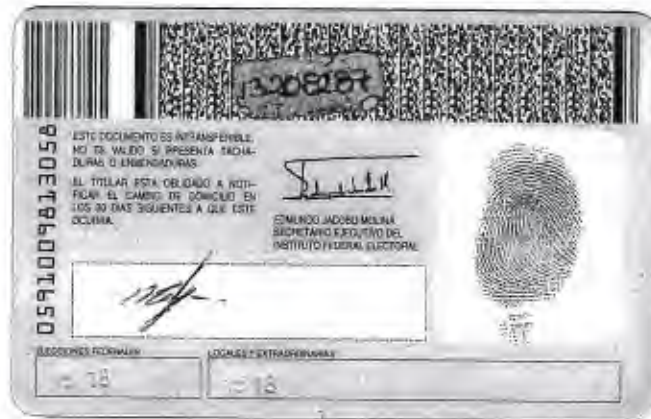 13208287
ESTE DOCUMENTO ES INTRANSFERIBLE,
NO ES VALIDO SI PRESENTA TACHA-
DURAS O ENMENDADURAS.
EL TITULAR ESTA OBLIGADO A NOTI-
FICAR EL CAMBIO DE DOMICILIO EN
LOS 30 DIAS SIGUIENTES A QUE ESTE
OCURRA.
EDMUNDO JACOBO MOLINA
SECRETARIO EJECUTIVO DEL
INSTITUTO FEDERAL ELECTORAL
0591009813058
ELECCIONES FEDERALES
LOCALES Y EXTRAORDINARIAS
18
18